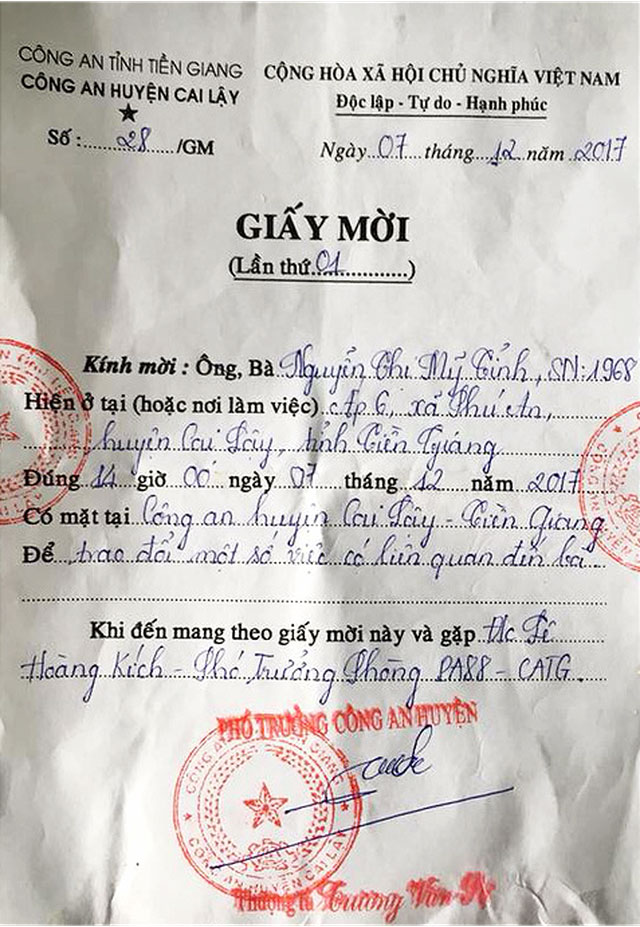 CÔNG AN TỈNH TIỀN GIANG
CÔNG AN HUYỆN CAI LẬY
Số :......28....../GM
CỘNG HÒA XÃ HỘI CHỦ NGHĨA VIỆT NAM
Độc lập - Tự do - Hạnh phúc
Ngày..07..tháng..12..năm 2017
GIẤY MỜI
(Lần thứ 01............)
Kính mời : Ông, Bà Nguyễn Thị Mỹ Tỉnh, SN:1968
Hiện ở tại (hoặc nơi làm việc) ấp 6, xã Phú An,
huyện Cai Lậy, tỉnh Tiền Giang
Đúng 14 giờ 00 ngày 07 tháng 12 năm 2017
Có mặt tại Công an huyện Cai Lậy - Tiền Giang
Để trao đổi một số việc có liên quan đến bà
Khi đến mang theo giấy mời này và gặp Đ/c Lê
Hoàng Kích - Phó Trưởng Phòng PA88 - CATG.
PHÓ TRƯỞNG CÔNG AN HUYỆN
CÔNG AN HUYỆN CAI LẬY
Thượng tá Trương Văn